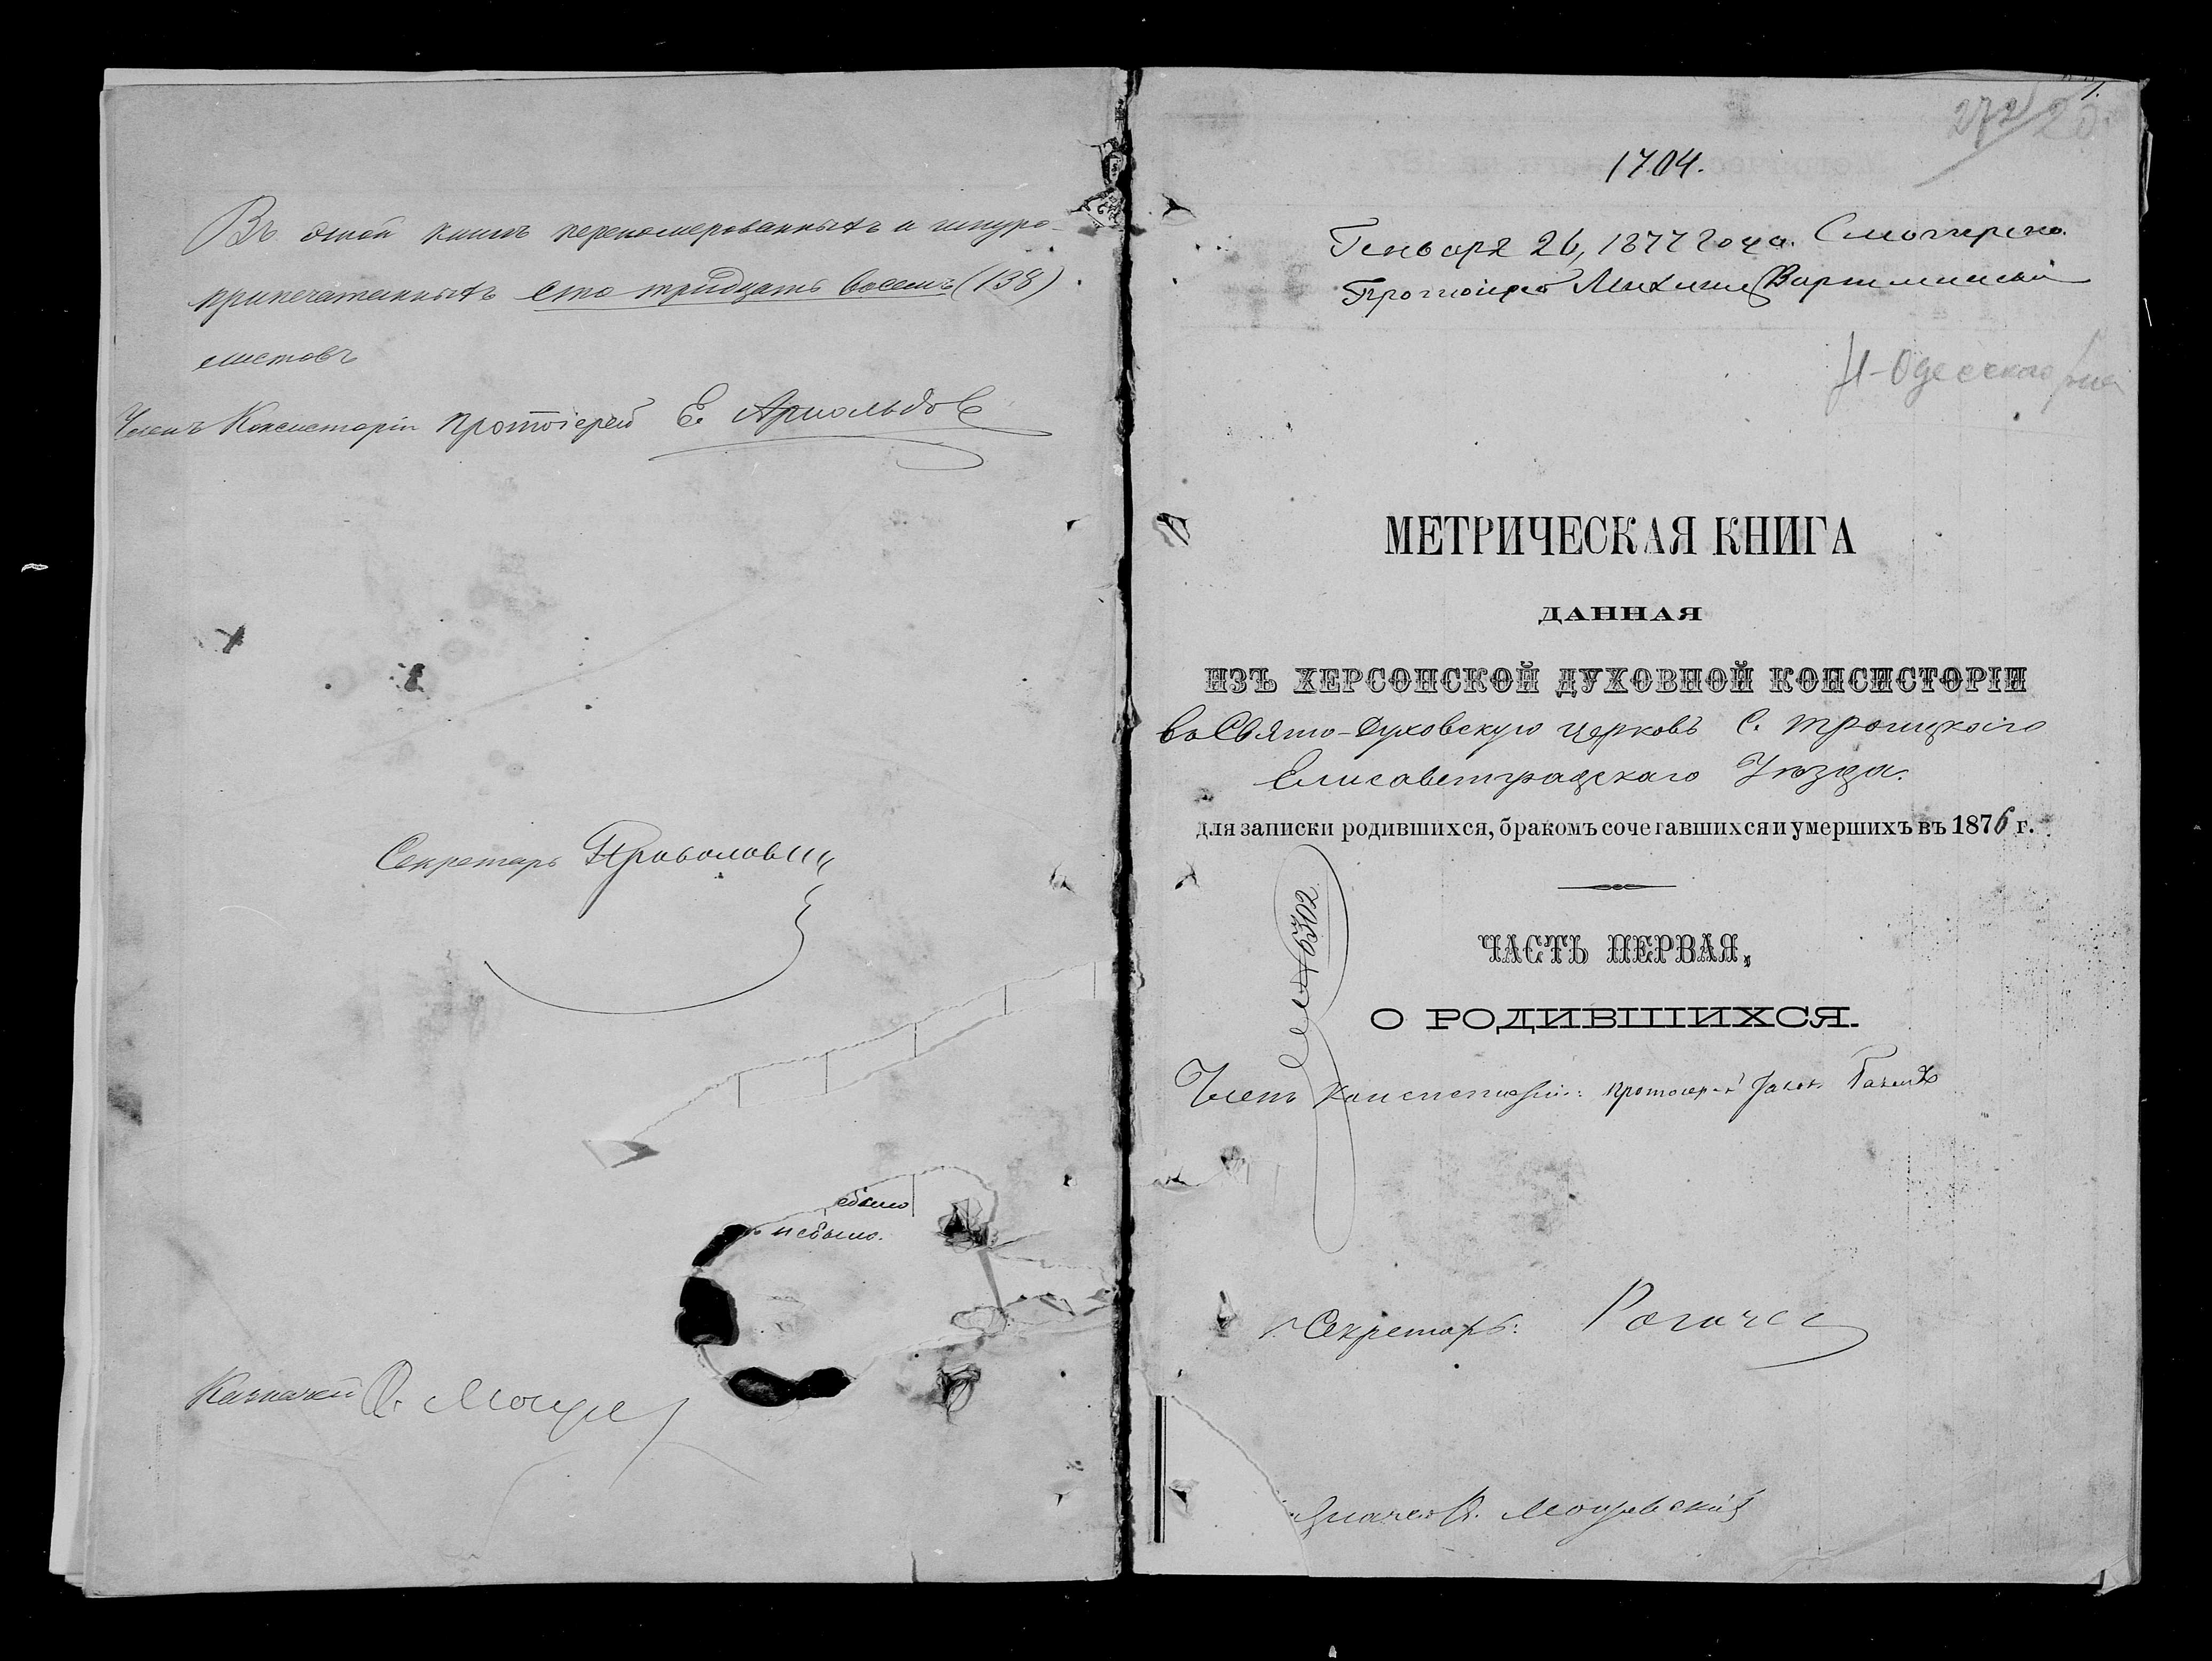 Въ этой книгѣ перенумерованныхъ и шнуро-
припечатанныхъ сто тридцать восемь (138)
листовъ
Членъ Консисторіи Протоіерей Е. Арнольдовъ
Секретарь
ебыло
небыло.
Казначей
272
1704.
Генваря 26, 1877 года.
Протоіерей Михаил
Н-Одесскаго
МЕТРИЧЕСКАЯ КНИГА
ДАННАЯ
ИЗЪ ХЕРСОНСКОЙ ДУХОВНОЙ КОНСИСТОРІИ
во Свято-Духовскую церковь С. Троицкаго
Елисаветградскаго Уѣзда.
для записки родившихся, бракомъ сочетавшихся и умершихъ въ 1876 г.
6302
ЧАСТЬ ПЕРВАЯ,
О РОДИВШИХСЯ.
Членъ Консисторіи: протоіерей
Секретарь: